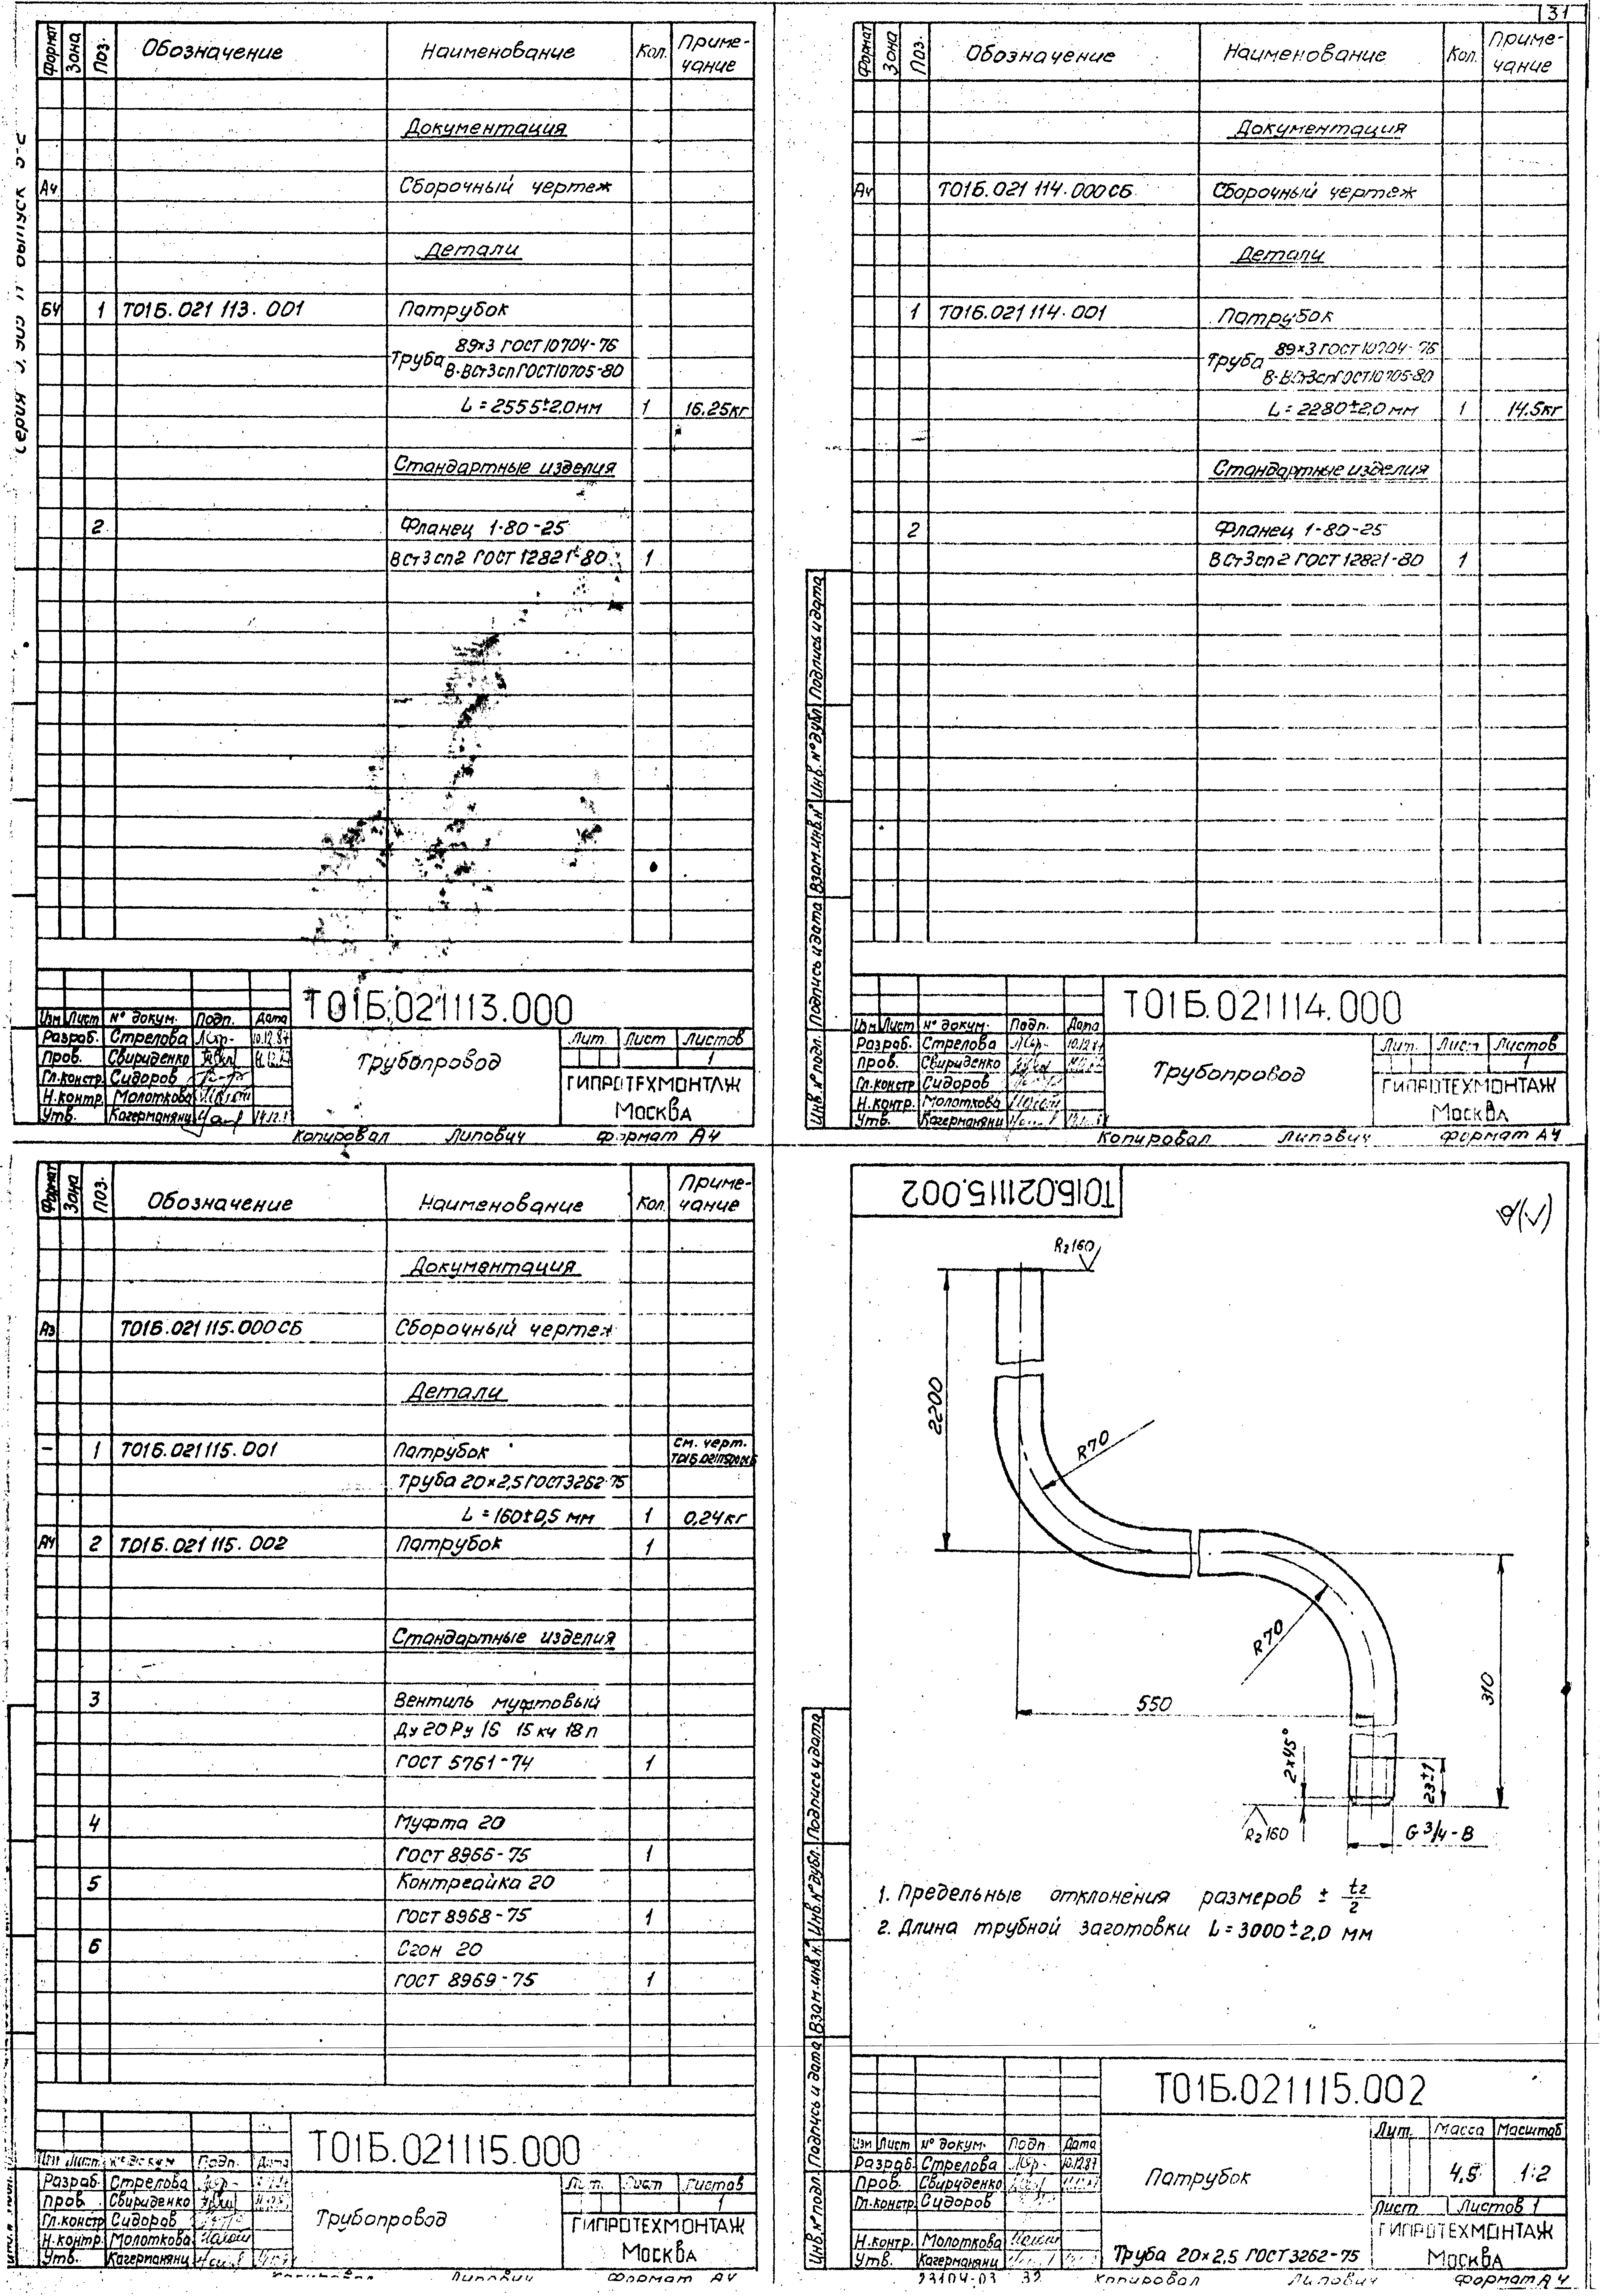 31
Формат Зона Поз. Обозначение Наименование Кол. Приме-
чание
Документация
А4 Сборочный чертеж
Детали
БЧ 1 Т01Б.021 113.001 Патрубок
Труба 89×3 ГОСТ 10704-76
В-ВСт3сп ГОСТ 10705-80
L = 2555±2.0 мм 1 16.25кг
Стандартные изделия
2 Фланец 1-80-25
ВСт3сп2 ГОСТ 12821-80 1
Т01Б.021113.000
Изм Лист № докум. Подп. Дата
Разраб. Стрелова 10.12.87
Пров. Свириденко
Гл.констр Сидоров
Н.контр. Молоткова
Утв. Кагерманянц
Трубопровод
Лит. Лист Листов
1
ГИПРОТЕХМОНТАЖ
Москва
Копировал Липович Формат А4
Формат Зона Поз. Обозначение Наименование Кол. Приме-
чание
Документация
А4 Т01Б.021 114.000СБ Сборочный чертеж
Детали
1 Т01Б.021 114.001 Патрубок
Труба 89×3 ГОСТ 10704-76
В-ВСт3сп ГОСТ 10705-80
L = 2280±2.0 мм 1 14.5кг
Стандартные изделия
2 Фланец 1-80-25
ВСт3сп2 ГОСТ 12821-80 1
Инв.№ подл. Подпись и дата Взам.инв.№ Инв.№ дубл Подпись и дата
Т01Б.021114.000
Изм Лист № докум. Подп. Дата
Разраб. Стрелова
Пров. Свириденко
Гл.констр Сидоров
Н.контр. Молоткова
Утв. Кагерманянц
Трубопровод
Лит. Лист Листов
1
ГИПРОТЕХМОНТАЖ
Москва
Копировал Липович Формат А4
Формат Зона Поз. Обозначение Наименование Кол. Приме-
чание
Документация
А3 Т01Б.021 115.000СБ Сборочный чертеж
Детали
– 1 Т01Б.021115.001 Патрубок см. черт.
Труба 20×2,5 ГОСТ 3262-75
L = 160±0,5 мм 1 0,24кг
А4 2 Т01Б.021 115.002 Патрубок 1
Стандартные изделия
3 Вентиль муфтовый
Ду 20 Ру 16 15 кч 18 п
ГОСТ 5761-74 1
4 Муфта 20
ГОСТ 8966-75 1
5 Контргайка 20
ГОСТ 8968-75 1
6 Сгон 20
ГОСТ 8969-75 1
Т01Б.021115.000
Изм Лист № докум Подп. Дата
Разраб. Стрелова
Пров. Свириденко
Гл.констр Сидоров
Н.контр. Молоткова
Утв. Кагерманянц
Трубопровод
Лит. Лист Листов
1
ГИПРОТЕХМОНТАЖ
Москва
Копировал Липович Формат А4
Т01Б.021115.002
Rz160
2200
R70
R70
550
310
2×45°
23±1
Rz160
G 3/4 - В
1. Предельные отклонения размеров ± t2/2
2. Длина трубной заготовки L = 3000±2,0 мм
Инв.№ подл. Подпись и дата Взам.инв.№ Инв.№ дубл. Подпись и дата
Т01Б.021115.002
Изм Лист № докум. Подп. Дата
Разраб. Стрелова 10.12.87
Пров. Свириденко
Гл.констр. Сидоров
Н.контр. Молоткова
Утв. Кагерманянц
Патрубок
Лит. Масса Масштаб
4,5 1:2
Лист Листов 1
Труба 20×2,5 ГОСТ 3262-75
ГИПРОТЕХМОНТАЖ
Москва
23104-03 32 Копировал Липович Формат А4